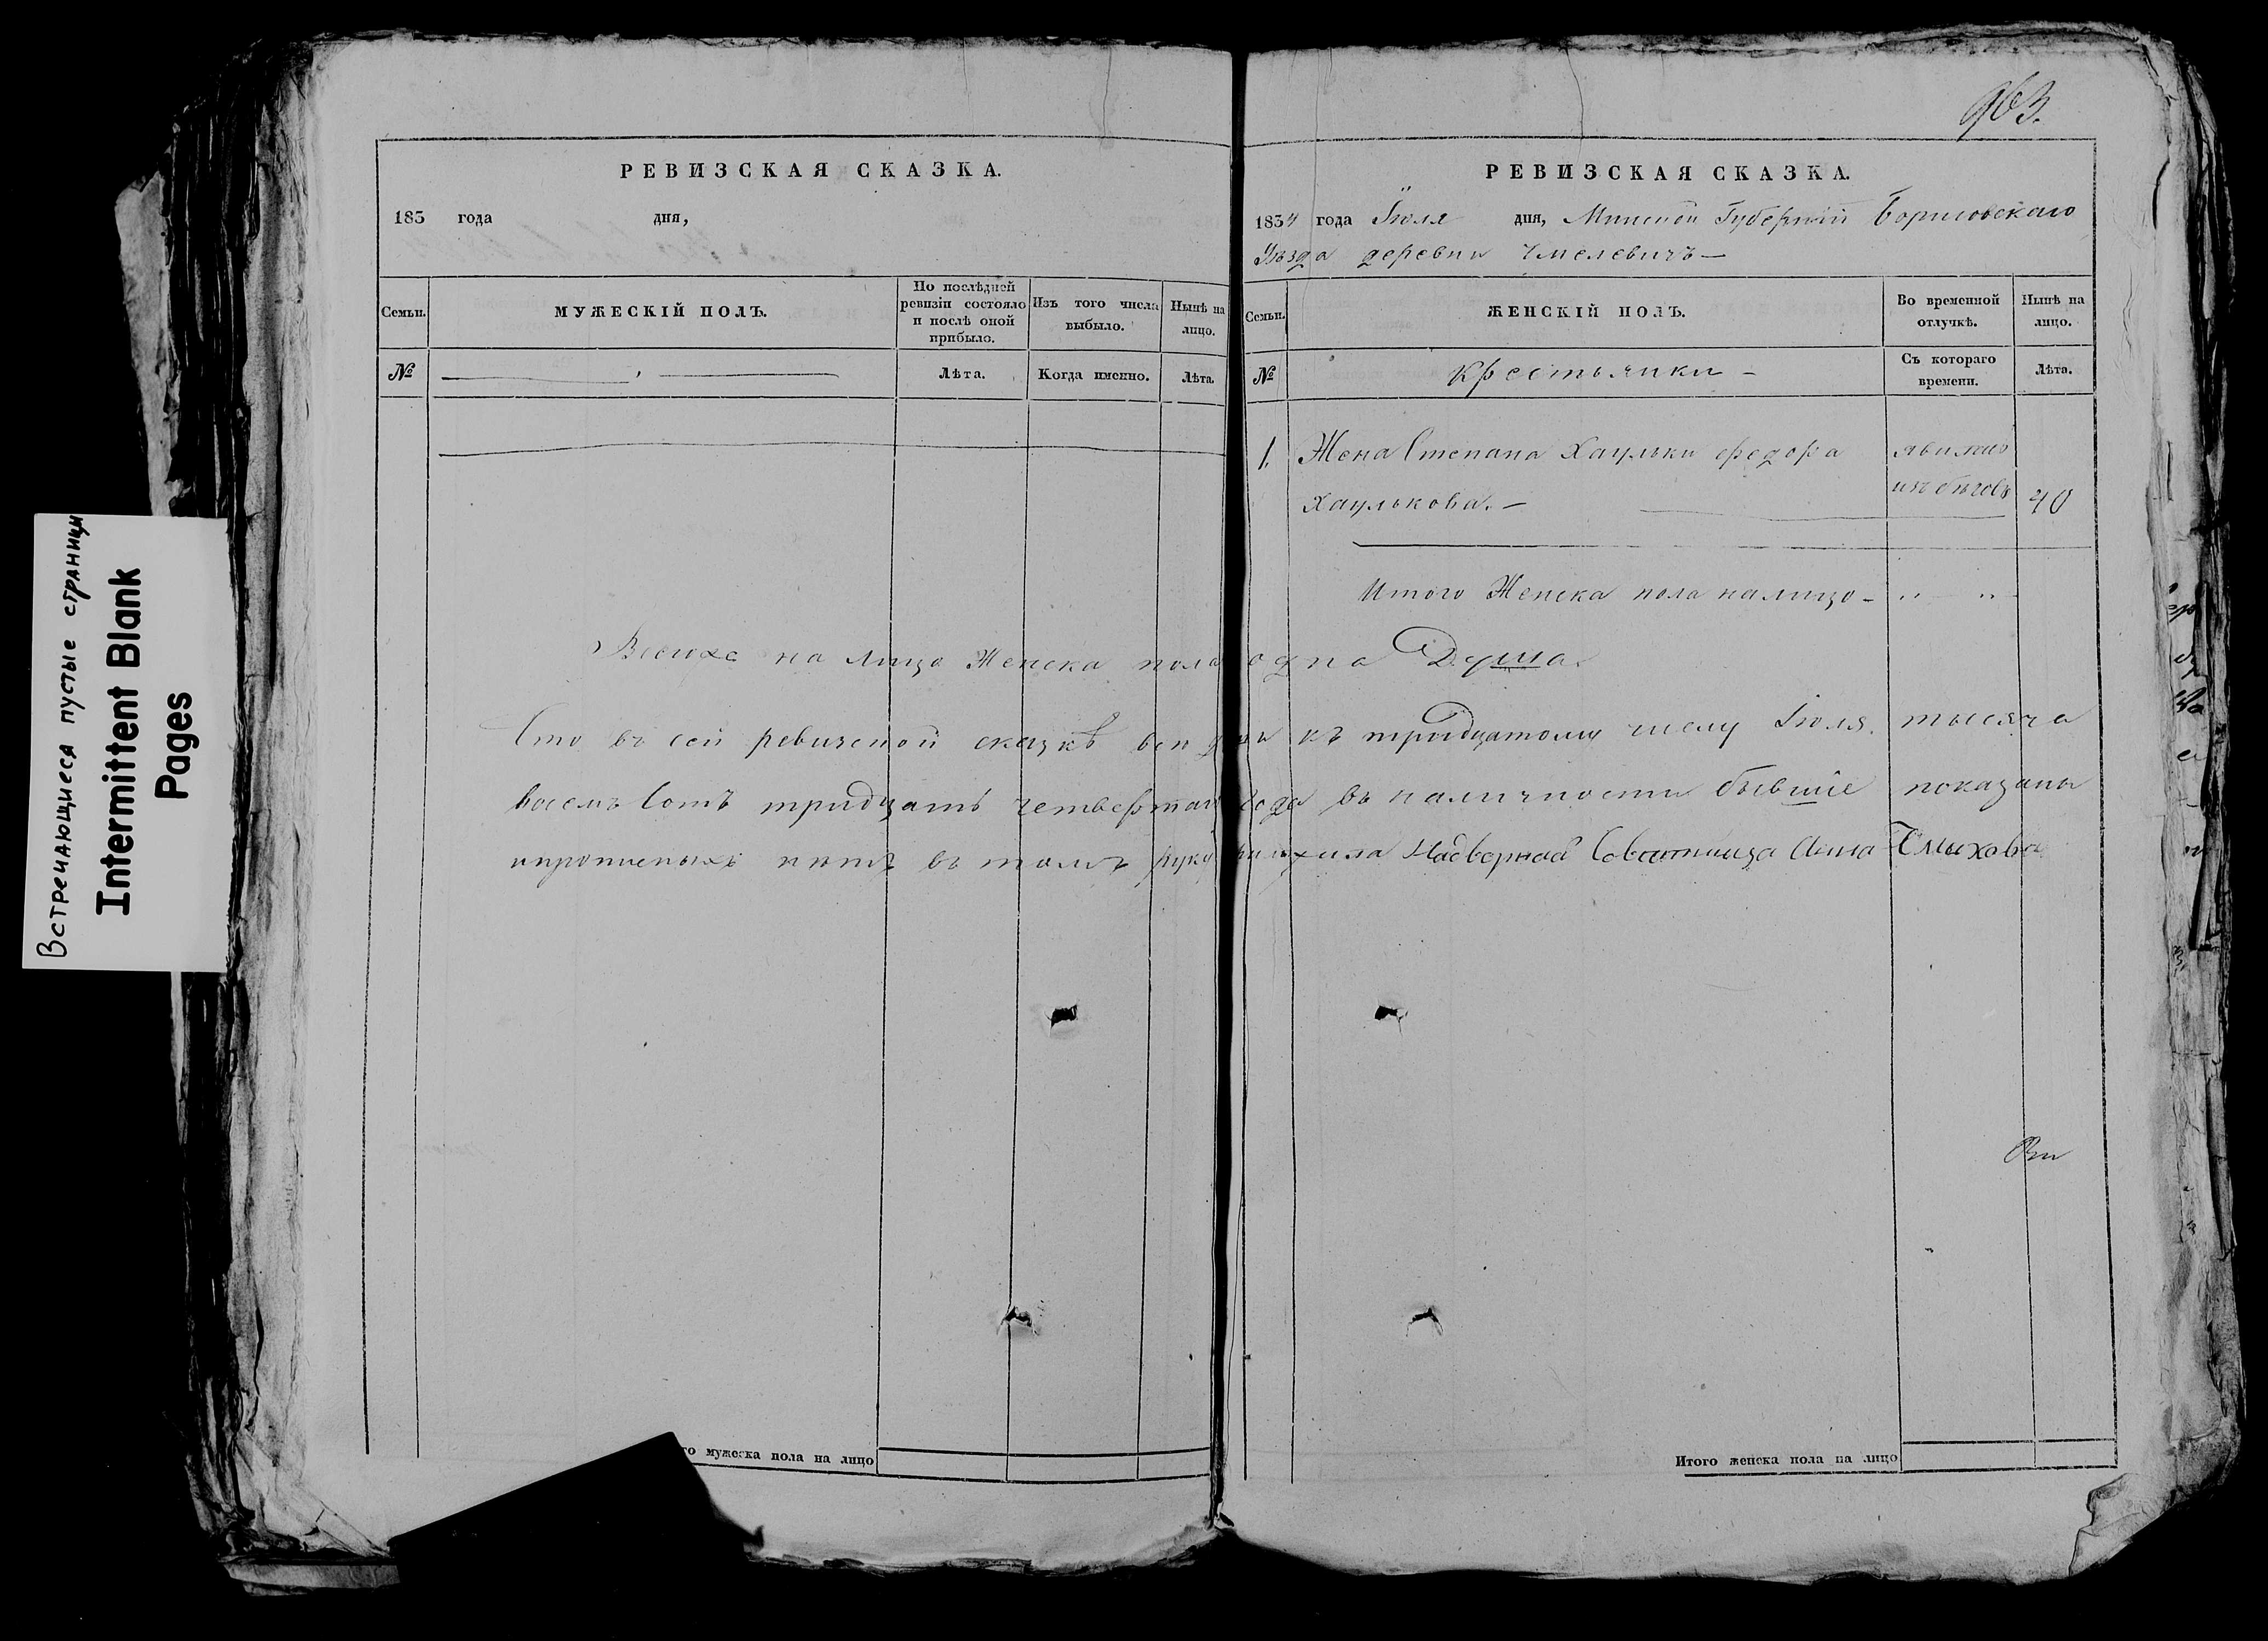 963.
Встречающиеся пустые страницы
Intermittent Blank
Pages
РЕВИЗСКАЯ СКАЗКА.
183 года дня,
Семьи.
МУЖЕСКІЙ ПОЛЪ.
По послѣдней
ревизіи состояло
и послѣ оной
прибыло.
Изъ того числа
выбыло.
Нынѣ на
лицо.
№
Лѣта.
Когда именно.
Лѣта.
РЕВИЗСКАЯ СКАЗКА.
1834 года Іюля дня, Минской Губерніи Борисовскаго
Уѣзда деревни Чмелевичъ —
Семьи.
ЖЕНСКІЙ ПОЛЪ.
Во временной
отлучкѣ.
Нынѣ на
лицо.
№
Крестьянки —
Съ котораго
времени.
Лѣта.
1. Жена Степана Хаульки федора
Хаулькова. —
изъ бѣговъ 40
Итого Женска пола налицо —
на лицо Женска пола одна Душа.
Что въ сей ревизской сказкѣ всѣ души къ тридцатому числу Іюля тысяча
восемъ Сотъ тридцать четвертаго года въ наличности бывшіе показаны
и прописныхъ нѣтъ въ томъ руку приложила Надворная Совѣтница Анна
го мужеска пола на лицо
Итого женска пола на лицо